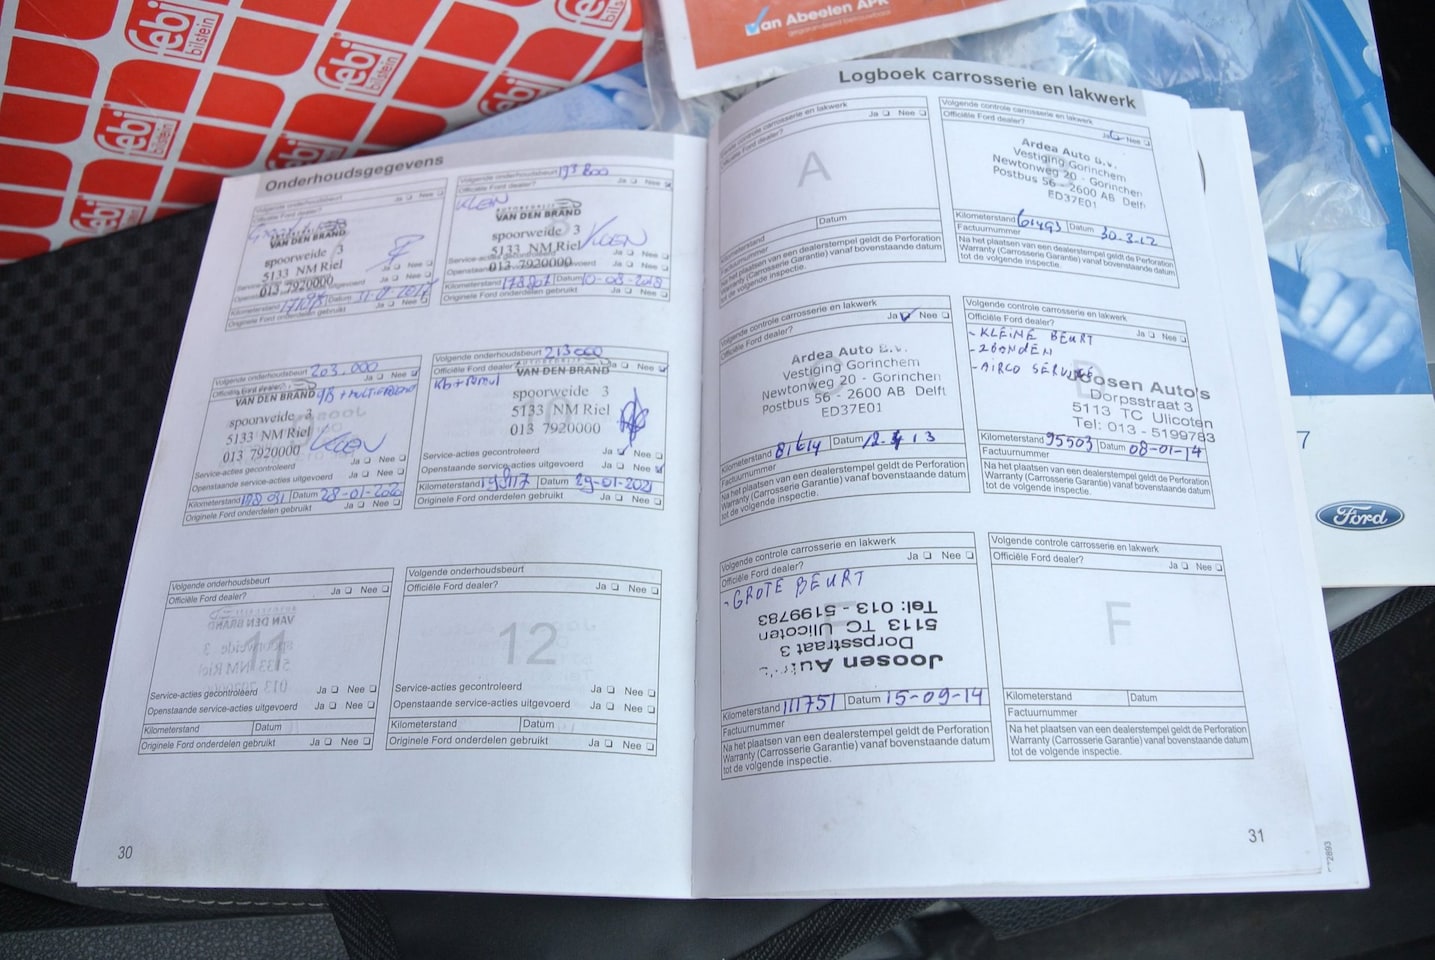 febi
bilstein
febi
bilstein
febi
bilstein
febi
febi
febi
Van Abeelen APK
Onderhoudsgegevens
Volgende onderhoudsbeurt
Officiële Ford dealer?
Nee
VAN DEN BRAND
spoorweide 3
5133 NM Riel
013 7920000
Ja Nee
Ja Nee
Kilometerstand Datum
Originele Ford onderdelen gebruikt Ja Nee
Volgende onderhoudsbeurt 193 800
Officiële Ford dealer? Ja Nee
KLEIN
VAN DEN BRAND
spoorweide 3
5133 NM Riel
013 7920000
Service-acties gecontroleerd Ja Nee
Openstaande service-acties uitgevoerd Ja Nee
Kilometerstand 178907 Datum 10-08-2018
Originele Ford onderdelen gebruikt Ja Nee
Volgende onderhoudsbeurt 203.000
Officiële Ford dealer? Ja Nee
VAN DEN BRAND
spoorweide 3
5133 NM Riel
013 7920000
Service-acties gecontroleerd Ja Nee
Openstaande service-acties uitgevoerd Ja Nee
Kilometerstand Datum 28-01-2020
Originele Ford onderdelen gebruikt Ja Nee
Volgende onderhoudsbeurt 213000
Officiële Ford dealer Ja Nee
VAN DEN BRAND
spoorweide 3
5133 NM Riel
013 7920000
10
Service-acties gecontroleerd Ja Nee
Openstaande service-acties uitgevoerd Ja Nee
Kilometerstand Datum 29-01-2021
Originele Ford onderdelen gebruikt Ja Nee
Volgende onderhoudsbeurt
Officiële Ford dealer? Ja Nee
11
Service-acties gecontroleerd Ja Nee
Openstaande service-acties uitgevoerd Ja Nee
Kilometerstand Datum
Originele Ford onderdelen gebruikt Ja Nee
Volgende onderhoudsbeurt
Officiële Ford dealer? Ja Nee
12
Service-acties gecontroleerd Ja Nee
Openstaande service-acties uitgevoerd Ja Nee
Kilometerstand Datum
Originele Ford onderdelen gebruikt Ja Nee
30
Logboek carrosserie en lakwerk
Volgende controle carrosserie en lakwerk
Officiële Ford dealer? Ja Nee
A
Kilometerstand Datum
Factuurnummer
Na het plaatsen van een dealerstempel geldt de Perforation
Warranty (Carrosserie Garantie) vanaf bovenstaande datum
tot de volgende inspectie.
Volgende controle carrosserie en lakwerk
Officiële Ford dealer? Ja Nee
Ardea Auto B.V.
Vestiging Gorinchem
Newtonweg 20 - Gorinchen
Postbus 56 - 2600 AB Delft
ED37E01
Kilometerstand 61493 Datum 30-3-12
Factuurnummer
Na het plaatsen van een dealerstempel geldt de Perforation
Warranty (Carrosserie Garantie) vanaf bovenstaande datum
tot de volgende inspectie.
Volgende controle carrosserie en lakwerk
Officiële Ford dealer? Ja Nee
Ardea Auto B.V.
Vestiging Gorinchem
Newtonweg 20 - Gorinchen
Postbus 56 - 2600 AB Delft
ED37E01
Kilometerstand 81614 Datum 12-4-13
Factuurnummer
Na het plaatsen van een dealerstempel geldt de Perforation
Warranty (Carrosserie Garantie) vanaf bovenstaande datum
tot de volgende inspectie.
Volgende controle carrosserie en lakwerk
Officiële Ford dealer? Ja Nee
- KLEINE BEURT
- 2BANDEN
- AIRCO SERVICE
D
Joosen Auto's
Dorpsstraat 3
5113 TC Ulicoten
Tel: 013 - 5199783
Kilometerstand 95503 Datum 08-01-14
Factuurnummer
Na het plaatsen van een dealerstempel geldt de Perforation
Warranty (Carrosserie Garantie) vanaf bovenstaande datum
tot de volgende inspectie.
Volgende controle carrosserie en lakwerk
Officiële Ford dealer? Ja Nee
- GROTE BEURT
Tel: 013 - 5199783
5113 TC Ulicoten
Dorpsstraat 3
Joosen Auto's
Kilometerstand 111751 Datum 15-09-14
Factuurnummer
Na het plaatsen van een dealerstempel geldt de Perforation
Warranty (Carrosserie Garantie) vanaf bovenstaande datum
tot de volgende inspectie.
Volgende controle carrosserie en lakwerk
Officiële Ford dealer? Ja Nee
F
Kilometerstand Datum
Factuurnummer
Na het plaatsen van een dealerstempel geldt de Perforation
Warranty (Carrosserie Garantie) vanaf bovenstaande datum
tot de volgende inspectie.
31
7
Ford